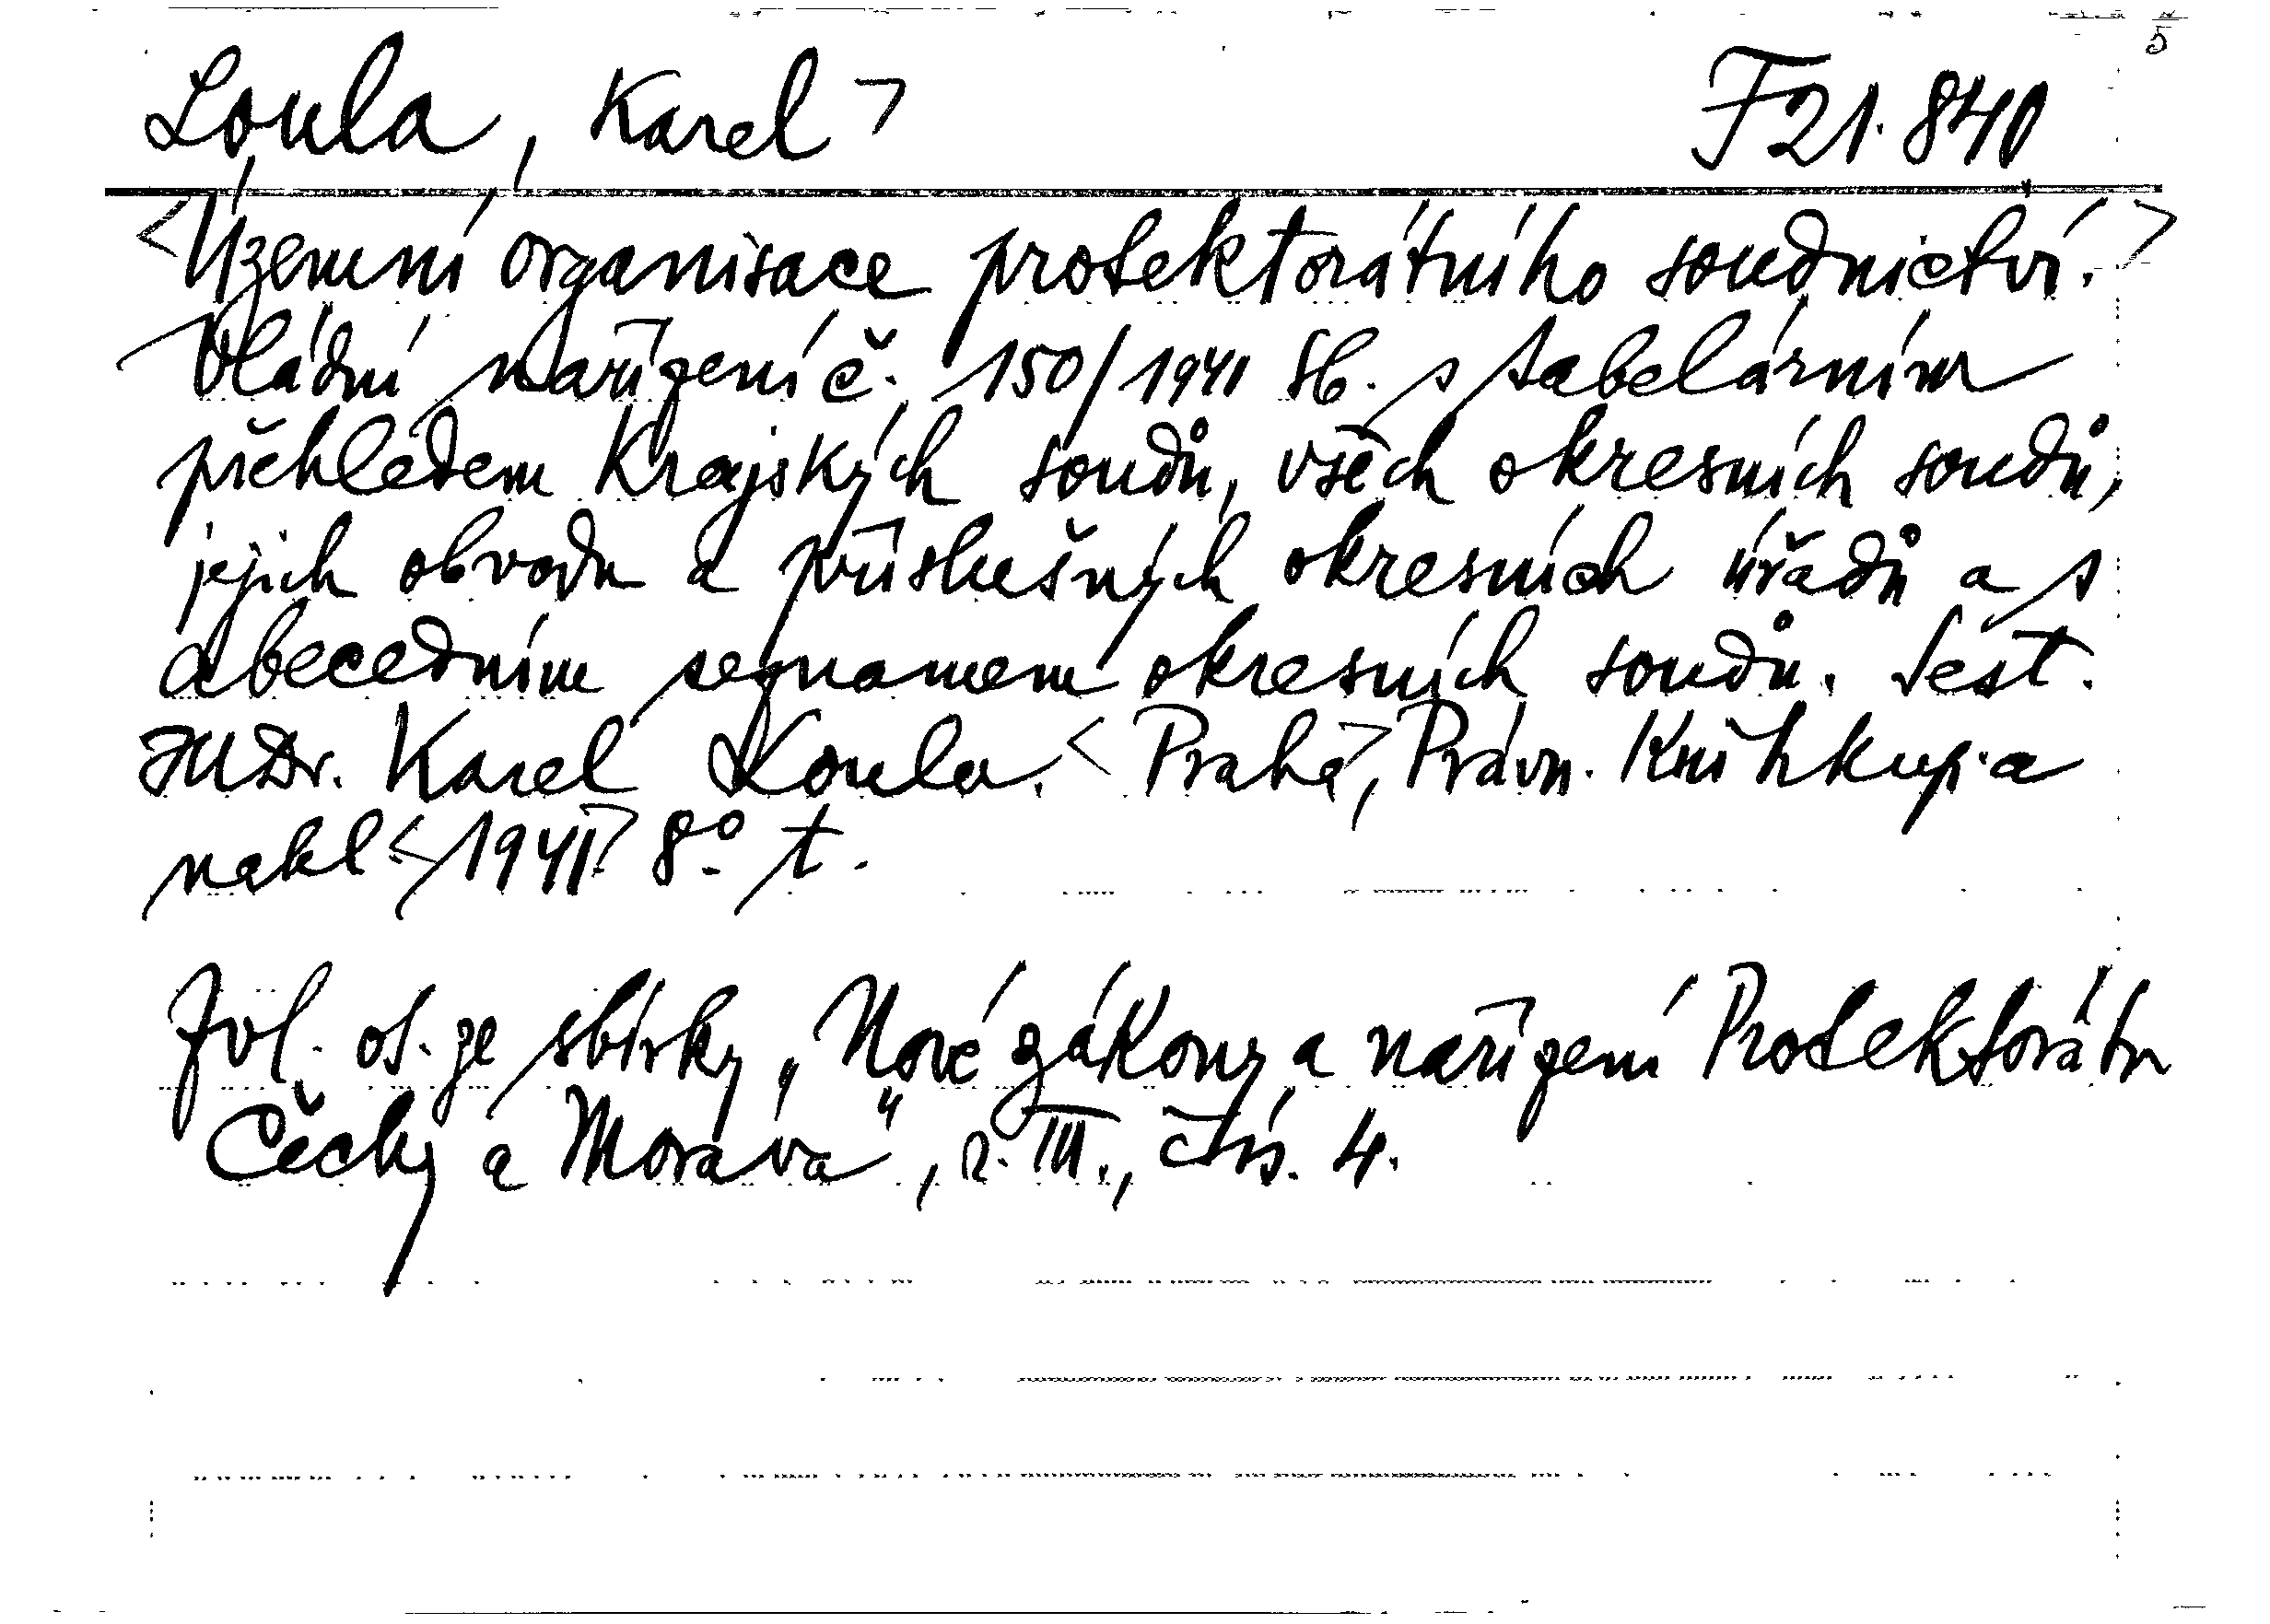 5
Loula, Karel ⌉ F 21.840
<Územní organisace protektorátního soudnictví.>
Vládní nařízení č. 150/1941 Sb. s tabelárním
přehledem krajských soudů, všech okresních soudů,
jejich obvodu a příslušných okresních úřadů a s
abecedním seznamem okresních soudů. Sest.
JUDr. Karel Loula. <Praha>, Právn. knihkup. a
nakl. <1941> 8° t.
Zvl. ot. ze sbírky „Nové zákony a nařízení Protektorátu
Čechy a Morava“, r. III., čís. 4.